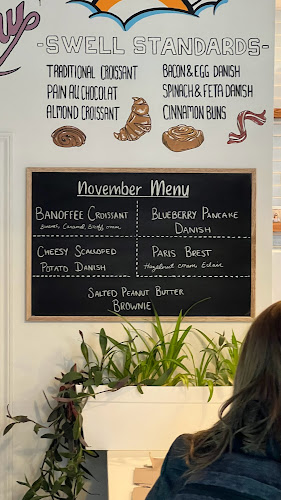 -SWELL STANDARDS-
TRADITIONAL CROISSANT
PAIN AU CHOCOLAT
ALMOND CROISSANT
BACON & EGG DANISH
SPINACH & FETA DANISH
CINNAMON BUNS
November Menu
BANOFFEE CROISSANT
Banana, Caramel, Biscoff cream
BLUEBERRY PANCAKE
DANISH
CHEESY SCALLOPED
POTATO DANISH
PARIS BREST
Hazelnut cream, Eclair
SALTED PEANUT BUTTER
BROWNIE